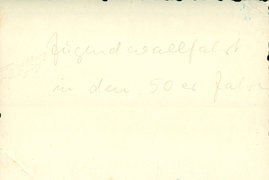 Jugendwallfahrt
in den 50er Jahren